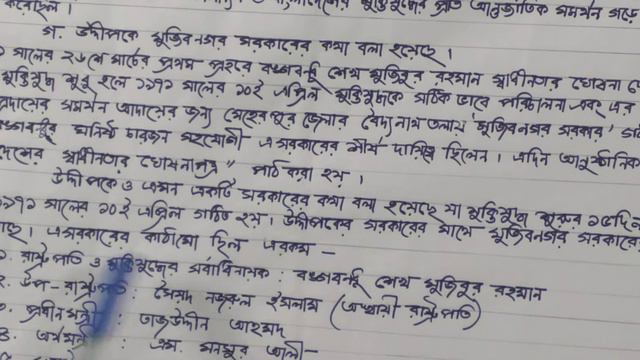 করেছিল। মুক্তিযুদ্ধের প্রতি আন্তর্জাতিক সমর্থন গড়ে
গ. উদ্দীপকে মুজিবনগর সরকারের কথা বলা হয়েছে।
সালের ২৬শে মার্চের প্রথম প্রহরে বঙ্গবন্ধু শেখ মুজিবুর রহমান স্বাধীনতার ঘোষনা
মুক্তিযুদ্ধ শুরু হলে ১৯৭১ সালের ১০ই এপ্রিল মুক্তিযুদ্ধকে সঠিক ভাবে পরিচালনা এবং এর
সমর্থন আদায়ের জন্য মেহেরপুর জেলার বৈদ্যনাথ তলায় 'মুজিবনগর সরকার'
বঙ্গবন্ধুর ঘনিষ্ঠ চারজন সহযোগী এ সরকারের শীর্ষ দায়িত্বে ছিলেন। এদিন আনুষ্ঠানিক
স্বাধীনতার ঘোষনাপত্র" পাঠ করা হয়।
উদ্দীপকেও এমন একটি সরকারের কথা বলা হয়েছে যা মুক্তিযুদ্ধ শুরুর ১৫দিন
১৯৭১ সালের ১০ই এপ্রিল গঠিত হয়। উদ্দীপকের সরকারের সাথে মুজিবনগর সরকারের
এ সরকারের কাঠামো ছিল এরকম —
১. রাষ্ট্রপতি ও মুক্তিযুদ্ধের সর্বাধিনায়ক : বঙ্গবন্ধু শেখ মুজিবুর রহমান
২. উপ-রাষ্ট্রপতি : সৈয়দ নজরুল ইসলাম (অস্থায়ী রাষ্ট্রপতি)
৩. প্রধানমন্ত্রী : তাজউদ্দীন আহমদ
৪. অর্থমন্ত্রী : এম. মনসুর আলী—